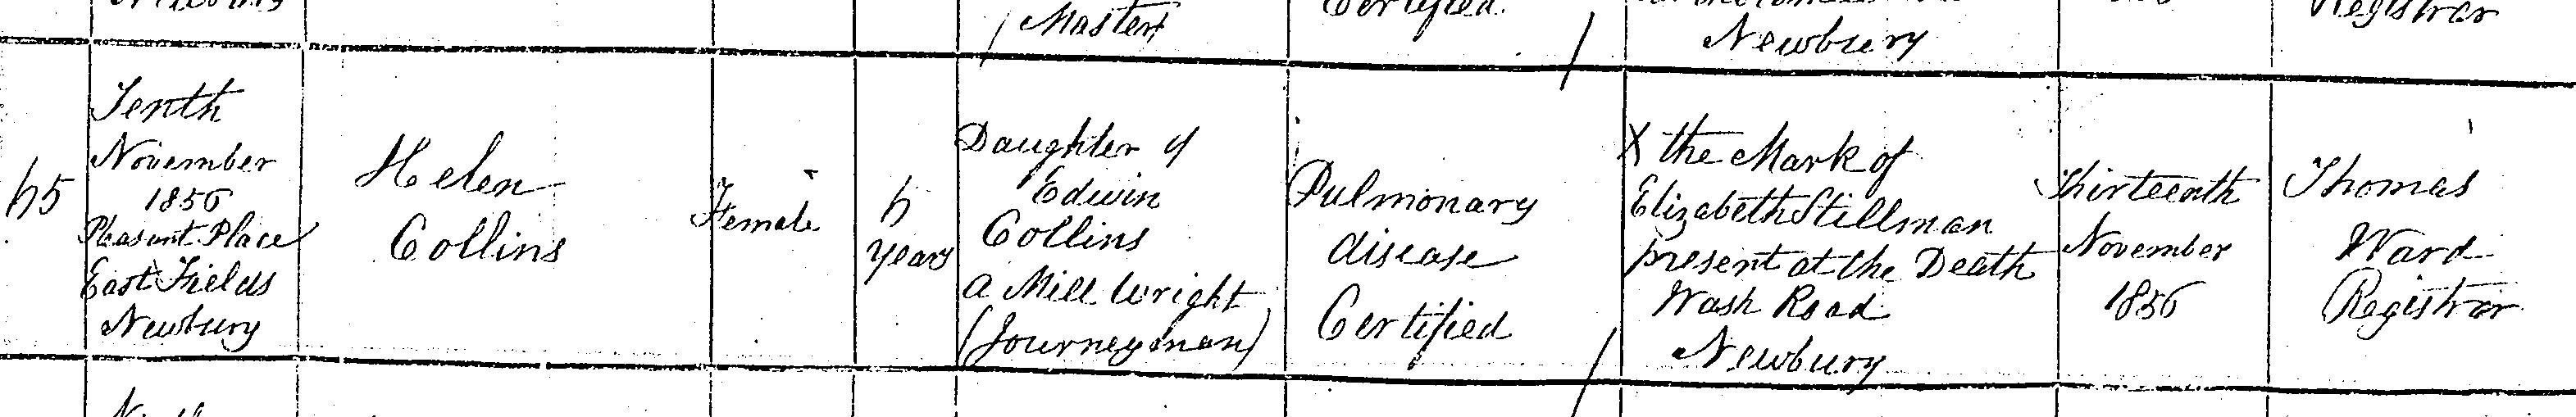 Master)
Certified.
Newbury
Registrar
Tenth
November
1856
Pleasant Place
East Fields
Newbury
Helen
Collins
Female
years
Daughter of
Edwin
Collins
a Mill Wright
(Journeyman)
Pulmonary
disease
Certified
X the Mark of
Elizabeth Stillman
present at the Death
Wash Road
Newbury
Thirteenth
November
1856
Thomas
Ward
Registrar